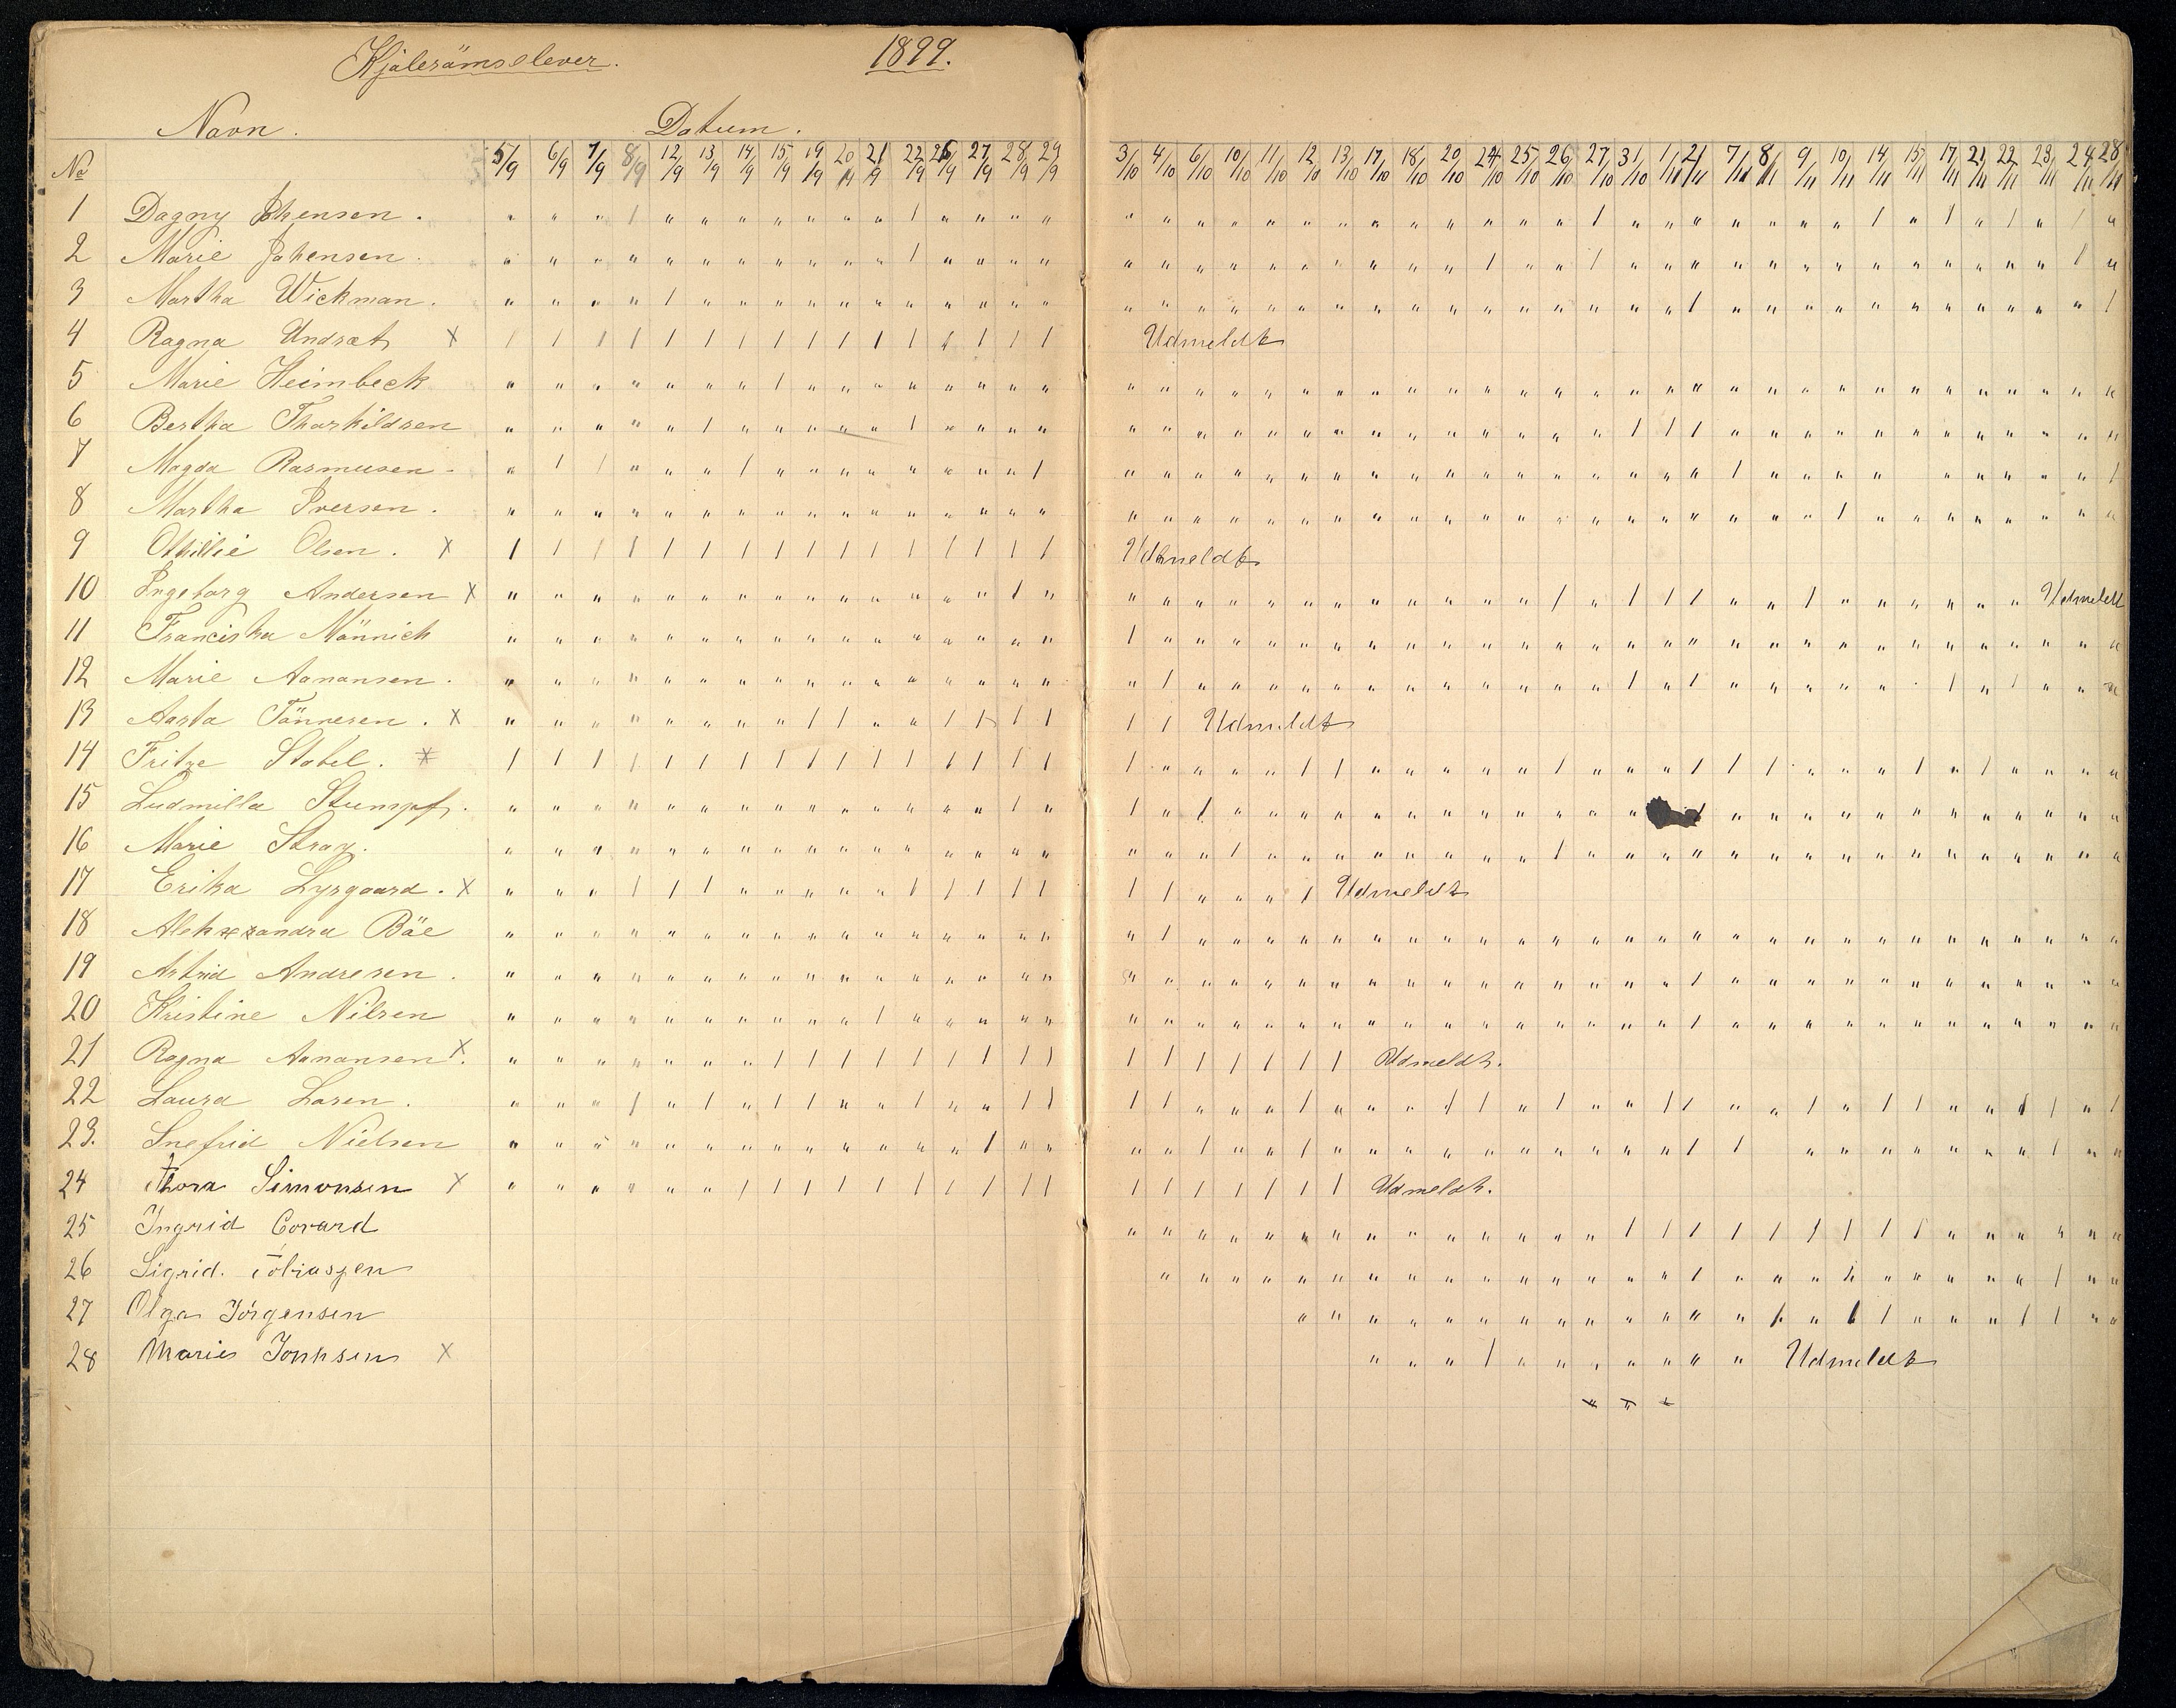 Kjolesömselever. 1899.
Navn. Datum.
No 5/9 6/9 7/9 8/9 12/9 13/9 14/9 15/9 19/9 20/9 21/9 22/9 26/9 27/9 28/9 29/9 3/10 4/10 6/10 10/10 11/10 12/10 13/10 17/10 18/10 20/10 24/10 25/10 26/10 27/10 31/10 1/11 2/11 7/11 8/11 9/11 10/11 14/11 15/11 17/11 21/11 22/11 23/11 24/11 28/11
1 Dagny Johensen.
2 Marie Johensen.
3 Martha Wickman.
4 Ragna Undsæt X Udmeldt
5 Marie Heimbeck
6 Bertha Thorkildsen
7 Magda Rasmusen.
8 Martha Iversen.
9 Othillie Olsen. X Udmeldt
10 Ingeborg Andersen X Udmeldt
11 Franciska Männich
12 Marie Aanansen.
13 Aasta Tönnesen. X Udmeldt
14 Fritze Stabel. X
15 Ludmilla Stumpf.
16 Marie Stray.
17 Erika Lyrgaard. X Udmeldt
18 Aleksandra Bäe
19 Astrid Andresen.
20 Kristine Nilsen
21 Ragna Aanansen X. Udmeldt.
22 Laura Larsen.
23. Snefrid Nielsen
24 Thora Simonsen X Udmeldt.
25 Ingrid Covard
26 Sigrid. Tobiassen
27 Olga Jörgensen
28 Marie Jonhsen X Udmeldt